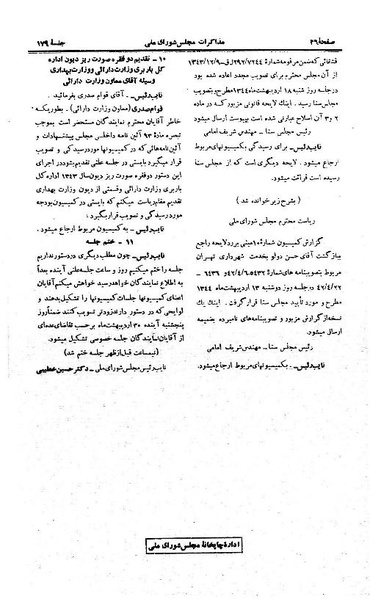 صفحهٔ ۲۶
مذاکرات مجلس شورای ملی
جلسهٔ ۱۷۹
قنقائی که ضمن مرقومه شمارهٔ ۲۹۲/۷۲۴۴ق-۱۳۴۳/۱۲/۹
از آن مجلس محترم برای تصویب مجدد اعاده شده بود
در جلسه روز شنبه ۱۸ اردیبهشت‌ماه ۱۳۴۴ مطرح و تصویب
مجلس سنا رسید. اینک لایحه قانونی مزبور که در مواد
۲ و ۳ آن اصلاح عبارتی شده است بپیوست ارسال میشود
رئیس مجلس سنا - مهندس شریف امامی
نایب رئیس- برای رسیدگی بکمیسیونهای مربوط
ارجاع میشود. لایحه دیگری است که از مجلس سنا
رسیده است قرائت میشود.
(بشرح زیر خوانده شد)
ریاست محترم مجلس شورای ملی
گزارش کمیسیون شماره ۱۰ مبنی بر رد لایحه راجع
ببازگشت آقای حسن دولو بخدمت شهرداری تهران
مربوط بتصویبنامه‌های شماره ۵۴۳۲-۴۲/۴/۶ و ۶۴۳۹ -
۴۲/۴/۲۲ در جلسه روز دوشنبه ۱۳ اردیبهشت ماه ۱۳۴۴
مطرح و مورد تأیید مجلس سنا قرار گرفت. اینک یک
نسخه از گزارش مزبور و تصویبنامه‌های نامبرده بضمیمه
ارسال میشود.
رئیس مجلس سنا - مهندس شریف امامی
نایب رئیس- بکمیسیونهای مربوط ارجاع میشود.
۱۰ - تقدیم دو فقره صورت ریز دیون اداره
کل باربری وزارت دارائی و وزارت بهداری
وسیله آقای معاون وزارت دارائی
نایب رئیس - آقای قوام صدری بفرمائید.
قوام صدری (معاون وزارت دارائی) - بطوریکه
خاطر آقایان محترم نمایندگان مستحضر است بموجب
تبصره مادهٔ ۹۳ آئین نامه داخلی مجلس پیشنهادات و
آئین نامه‌هائی که در کمیسیونها مورد رسیدگی و تصویب
قرار میگیرد بایستی در جلسه علنی تقدیم بشود در اجرای
این دستور دو فقره صورت ریز دیون سال ۱۳۴۳ اداره کل
باربری وزارت دارائی و قسمتی از دیون وزارت بهداری
تقدیم مقام ریاست میکنم که بایستی در کمیسیون بودجه
مورد رسیدگی و تصویب قرار بگیرد.
نایب رئیس - به کمیسیون مربوط ارجاع میشود.
۱۱ - ختم جلسه
نایب رئیس - چون مطلب دیگری در دستور نداریم
جلسه را ختم میکنیم روز و ساعت جلسه علنی آینده بعداً
به اطلاع نمایندگان خواهد رسید خواهش میکنم آقایان
اعضای کمیسیونها جلسات کمیسیونها را تشکیل بدهند و
لوایحی که در دستور دارند زودتر تصویب کنند ضمناً روز
پنجشنبه آینده ۳۰ اردیبهشت‌ماه برحسب تقاضای عده‌ای
از آقایان نمایندگان جلسه خصوصی تشکیل میشود.
(نیمساعت قبل از ظهر جلسه ختم شد)
نایب رئیس مجلس شورای ملی - دکتر حسین خطیبی
اداره چاپخانهٔ مجلس شورای ملی